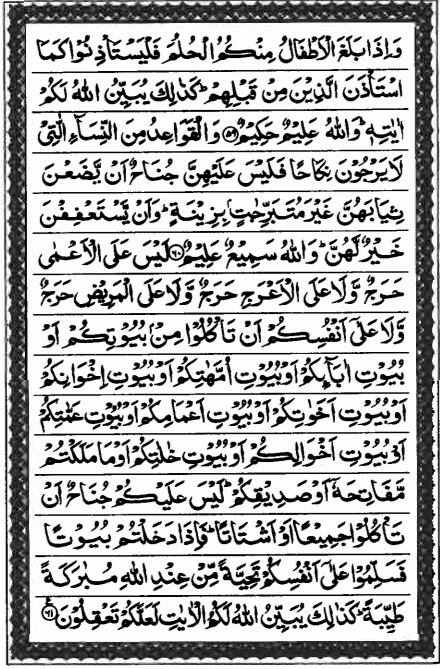 وَاِذَا بَلَغَ الْاَطْفَالُ مِنْكُمُ الْحُلُمَ فَلْيَسْتَاْذِنُوْا كَمَا
اسْتَاْذَنَ الَّذِيْنَ مِنْ قَبْلِهِمْ ؕ كَذٰلِكَ يُبَيِّنُ اللّٰهُ لَكُمْ
اٰيٰتِهٖ ؕ وَاللّٰهُ عَلِيْمٌ حَكِيْمٌ ۵۹ وَالْقَوَاعِدُ مِنَ النِّسَآءِ الّٰتِیْ
لَا يَرْجُوْنَ نِكَاحًا فَلَيْسَ عَلَيْهِنَّ جُنَاحٌ اَنْ يَّضَعْنَ
ثِيَابَهُنَّ غَيْرَ مُتَبَرِّجٰتٍۭ بِزِيْنَةٍ ؕ وَاَنْ يَّسْتَعْفِفْنَ
خَيْرٌ لَّهُنَّ ؕ وَاللّٰهُ سَمِيْعٌ عَلِيْمٌ ۶۰ لَيْسَ عَلَى الْاَعْمٰى
حَرَجٌ وَّلَا عَلَى الْاَعْرَجِ حَرَجٌ وَّلَا عَلَى الْمَرِيْضِ حَرَجٌ
وَّلَا عَلٰٓى اَنْفُسِكُمْ اَنْ تَاْكُلُوْا مِنْۢ بُيُوْتِكُمْ اَوْ
بُيُوْتِ اٰبَآئِكُمْ اَوْ بُيُوْتِ اُمَّهٰتِكُمْ اَوْ بُيُوْتِ اِخْوَانِكُمْ
اَوْ بُيُوْتِ اَخَوٰتِكُمْ اَوْ بُيُوْتِ اَعْمَامِكُمْ اَوْ بُيُوْتِ عَمّٰتِكُمْ
اَوْ بُيُوْتِ اَخْوَالِكُمْ اَوْ بُيُوْتِ خٰلٰتِكُمْ اَوْ مَا مَلَكْتُمْ
مَّفَاتِحَهٗٓ اَوْ صَدِيْقِكُمْ ؕ لَيْسَ عَلَيْكُمْ جُنَاحٌ اَنْ
تَاْكُلُوْا جَمِيْعًا اَوْ اَشْتَاتًا ؕ فَاِذَا دَخَلْتُمْ بُيُوْتًا
فَسَلِّمُوْا عَلٰٓى اَنْفُسِكُمْ تَحِيَّةً مِّنْ عِنْدِ اللّٰهِ مُبٰرَكَةً
طَيِّبَةً ؕ كَذٰلِكَ يُبَيِّنُ اللّٰهُ لَكُمُ الْاٰيٰتِ لَعَلَّكُمْ تَعْقِلُوْنَ ۶۱